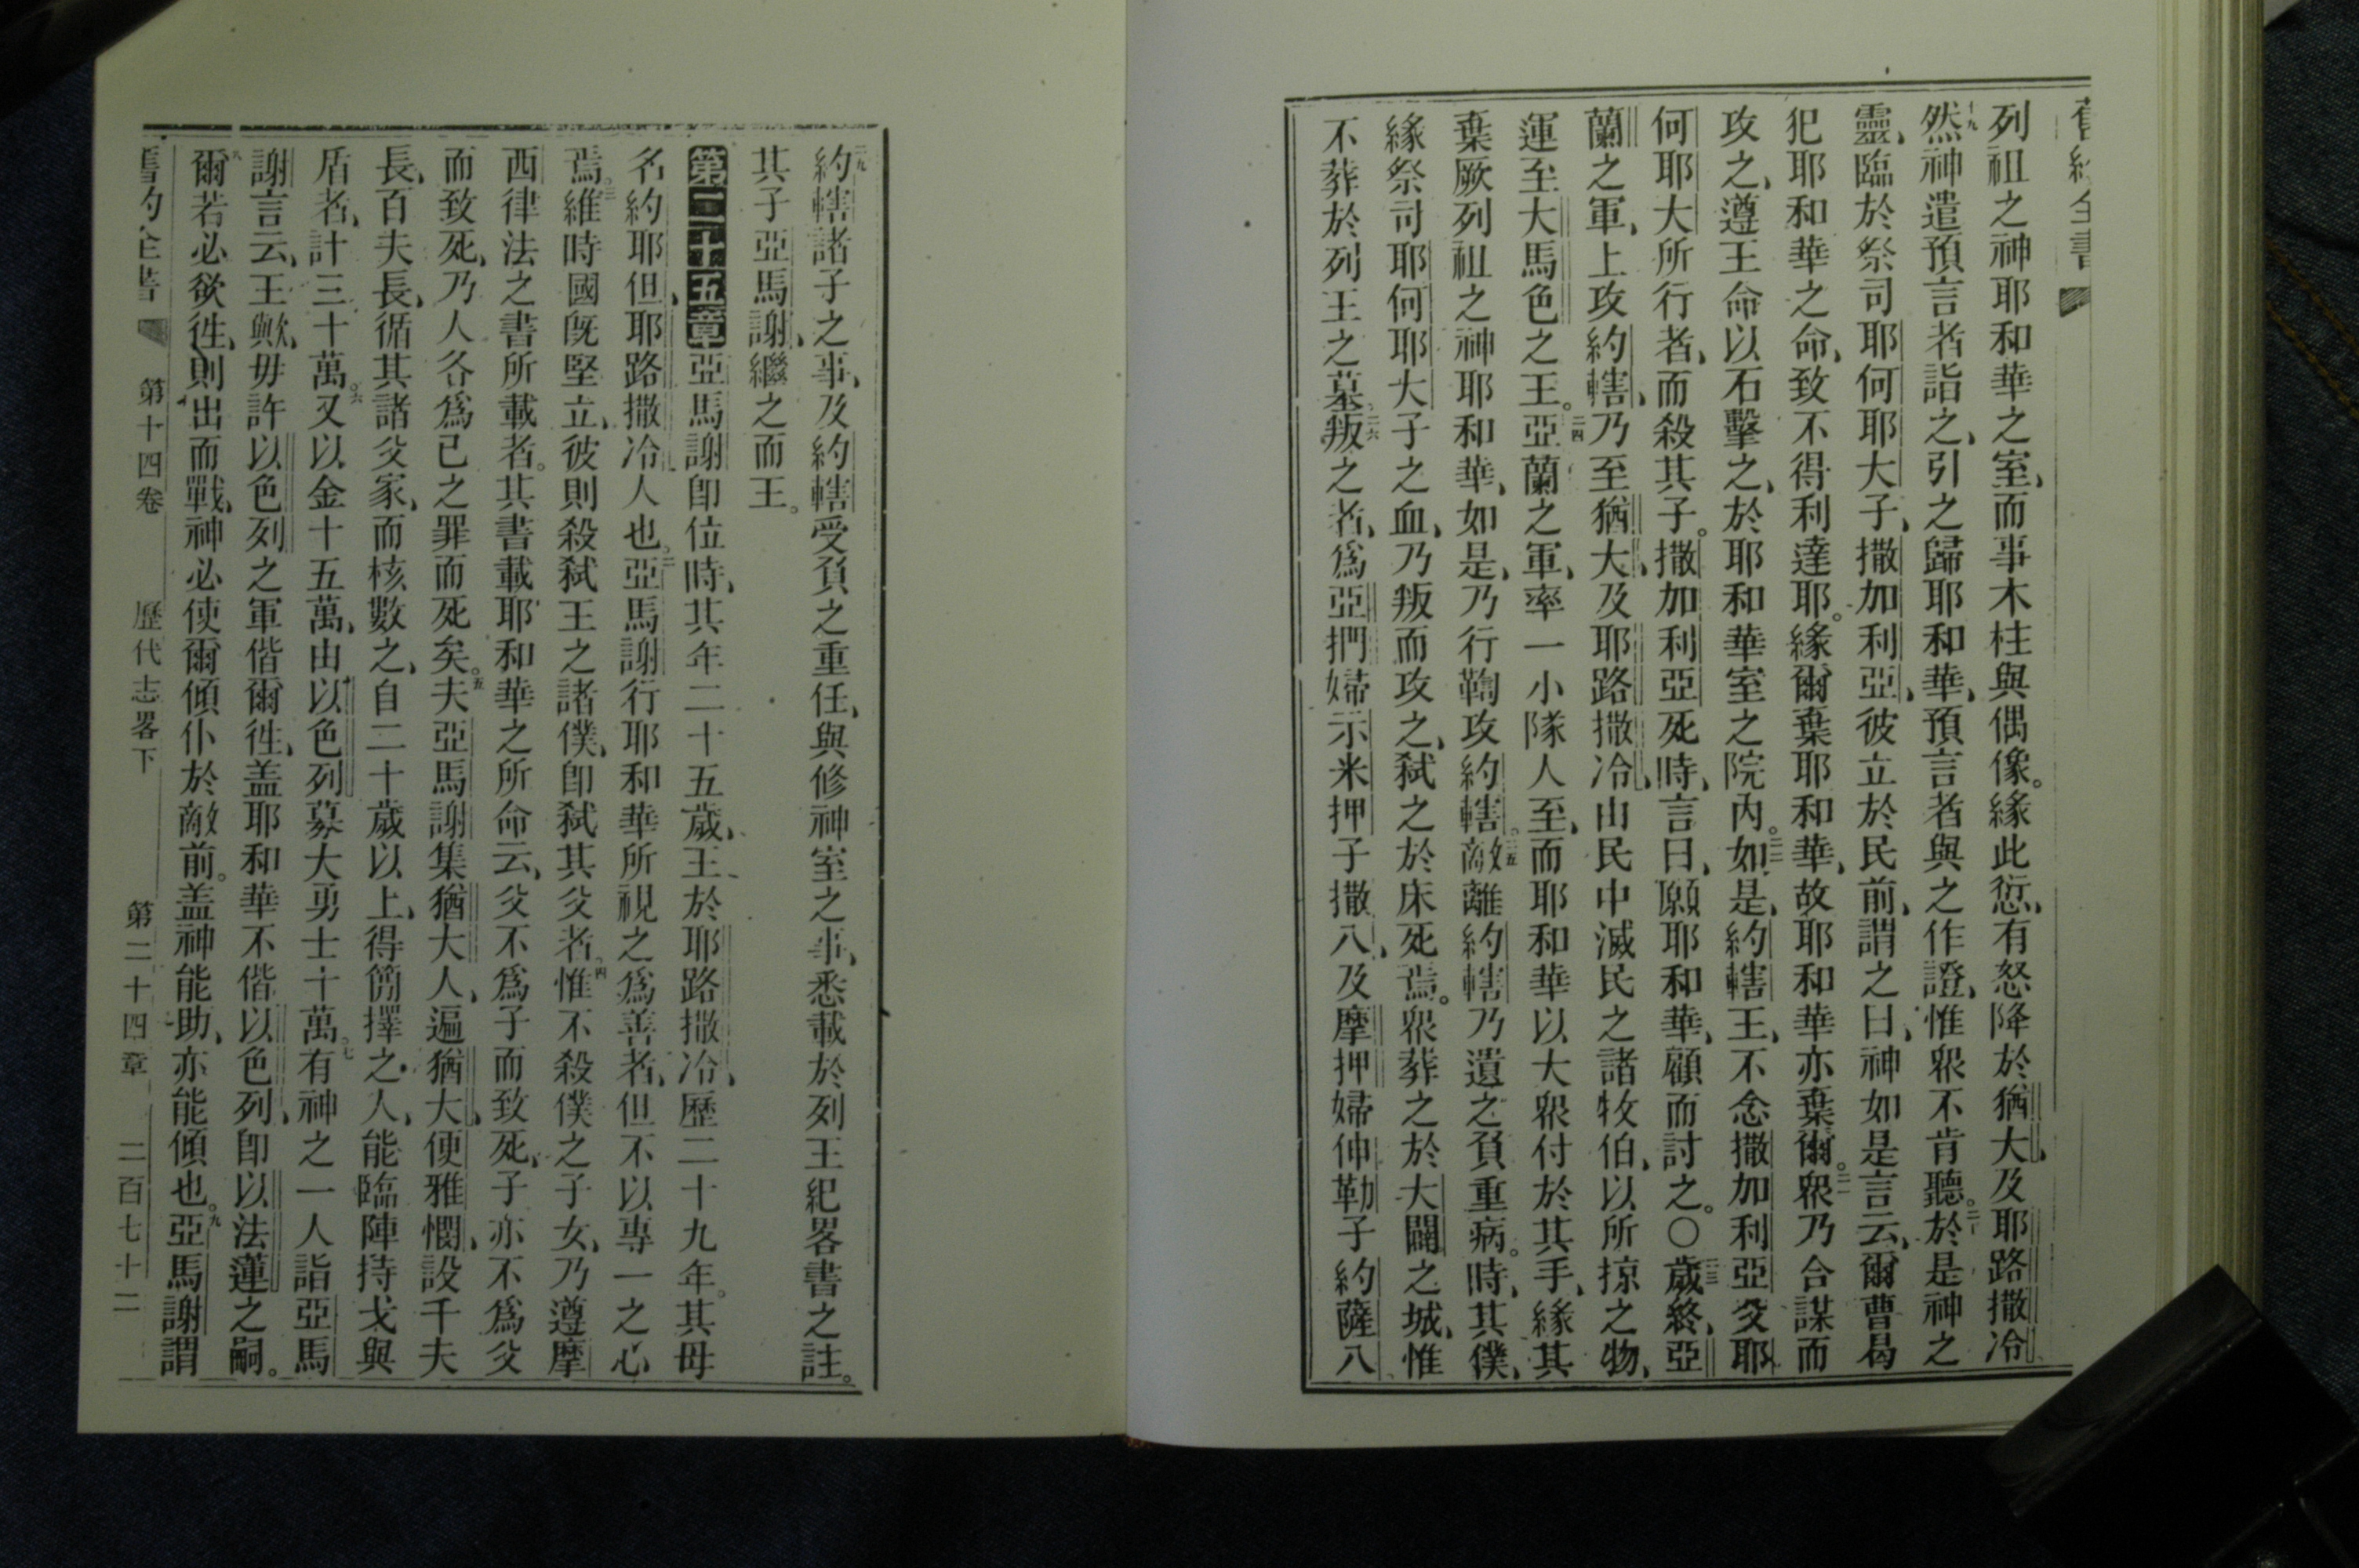 舊約全書
列祖之神耶和華之室、而事木柱與偶像。緣此愆、有怒降於猶大、及耶路撒冷
十九然神遣預言者詣之、引之歸耶和華、預言者與之作證、惟眾不肯聽。二十於是神之
靈、臨於祭司耶何耶大子、撒加利亞、彼立於民前、謂之曰、神如是言云、爾曹曷
犯耶和華之命、致不得利達耶。緣爾棄耶和華、故耶和華亦棄爾。二一眾乃合謀而
攻之、遵王命以石擊之、於耶和華室之院內。二二如是、約轄王、不念撒加利亞父耶
何耶大所行者、而殺其子。撒加利亞死時、言曰、願耶和華、顧而討之。〇二三歲終、亞
蘭之軍、上攻約轄、乃至猶大、及耶路撒冷、由民中滅民之諸牧伯、以所掠之物、
運至大馬色之王。二四亞蘭之軍、率一小隊人至、而耶和華以大眾付於其手、緣其
棄厥列祖之神耶和華、如是、乃行鞫攻約轄。二五敵離約轄乃遺之負重病。時、其僕、
緣祭司耶何耶大子之血、乃叛而攻之、弒之於床死焉。眾葬之於大闢之城、惟
不葬於列王之墓。二六叛之者、為亞捫婦示米押子撒八、及摩押婦伸勒子約薩八
二九約轄諸子之事、及約轄受負之重任、與修神室之事、悉載於列王紀畧書之註。
其子亞馬謝、繼之而王。
第二十五章亞馬謝即位時、其年二十五歲、王於耶路撒冷、歷二十九年。其母
名約耶但、耶路撒冷人也。二亞馬謝行耶和華所視之為善者、但不以專一之心
焉。三維時國既堅立、彼則殺弒王之諸僕、即弒其父者。四惟不殺僕之子女、乃遵摩
西律法之書所載者。其書載耶和華之所命云、父不為子而致死、子亦不為父
而致死、乃人各為己之罪而死矣。五夫亞馬謝集猶大人、遍猶大、便雅憫、設千夫
長、百夫長、循其諸父家、而核數之、自二十歲以上、得簡擇之人、能臨陣持戈與
盾者、計三十萬。六又以金十五萬、由以色列募大勇士十萬。七有神之一人詣亞馬
謝言云、王歟、毋許以色列之軍偕爾徃、盖耶和華不偕以色列、即以法蓮之嗣。
八爾若必欲徃、則出而戰、神必使爾傾仆於敵前。盖神能助、亦能傾也。九亞馬謝謂
舊約全書 第十四卷 歷代志畧下 第二十四章 二百七十二